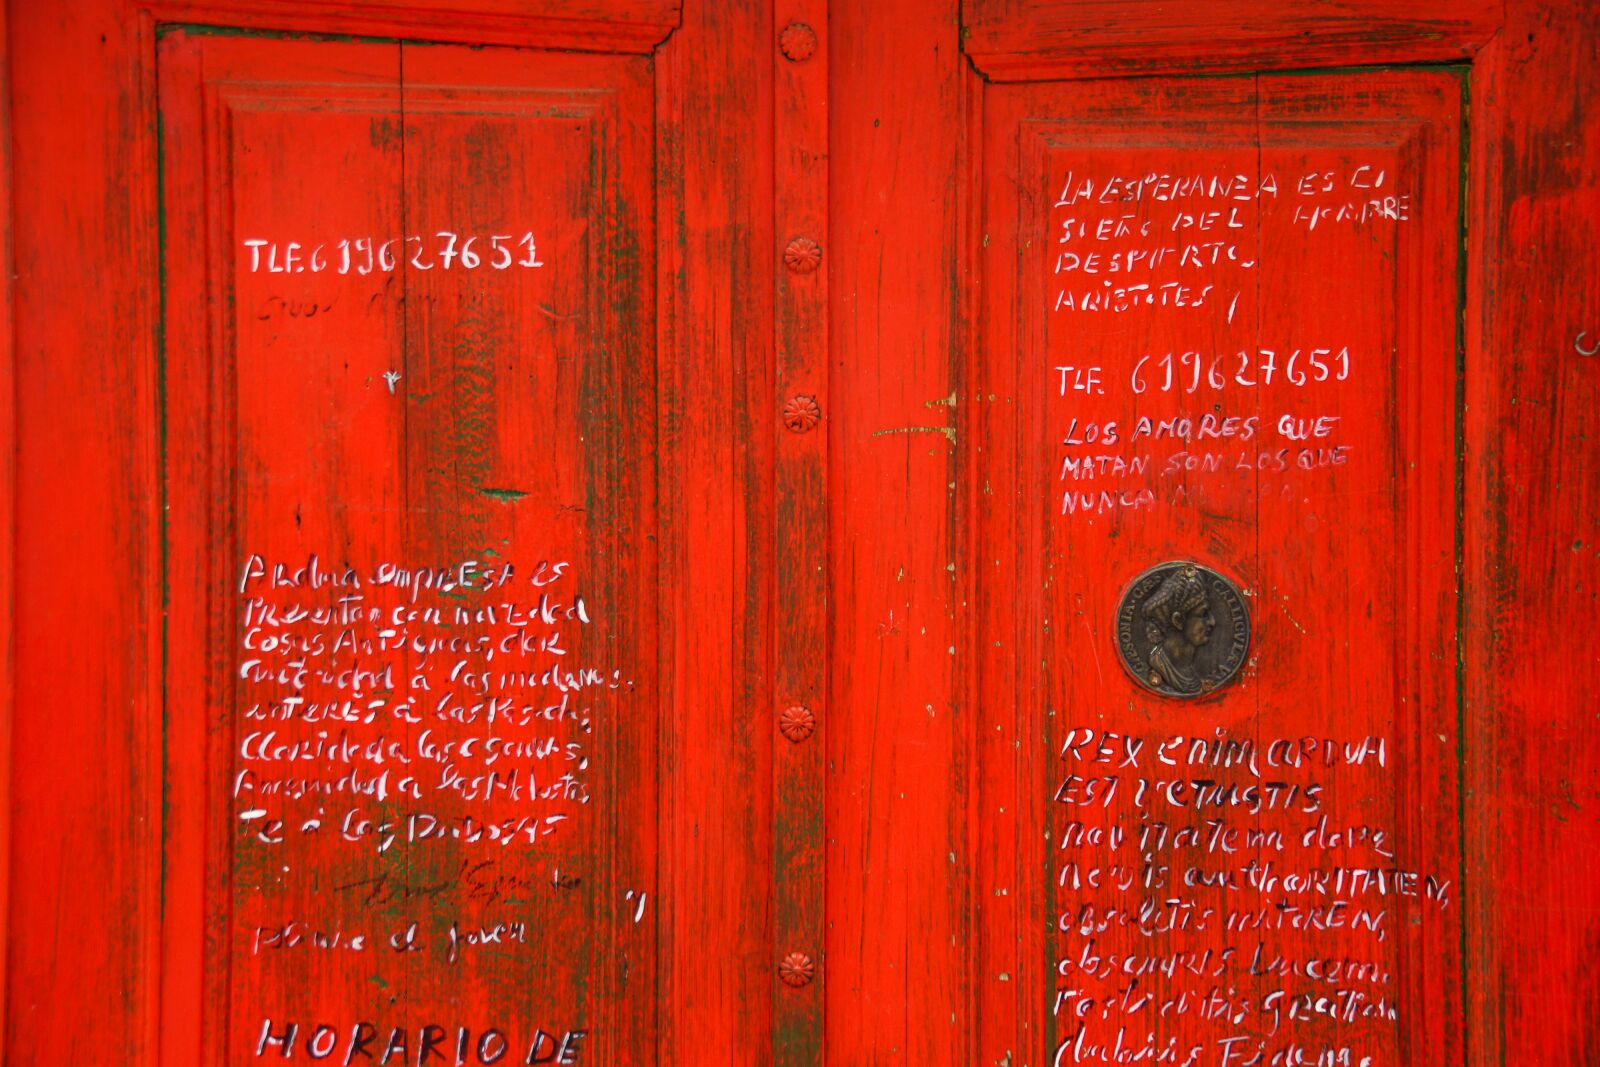 TLF. 619627651
Ardua empresa es
Presentar con novedad
cosas Antiguas, dar
autoridad á las modernas.
interés á las Pasadas,
Claridad a las oscuras,
Amenidad a las Molestis,
Fe á las DuDosas
y
Plinio el joven
HORARIO DE
LA ESPERANZA ES El
SUEÑO DEL HOMBRE
DESPIERTO.
ARISTOTES,
TLF. 619627651
LOS AMORES QUE
MATAN SON LOS QUE
NUNCA
CAESONIA
REX enim ARDUA
EST VETUSTIS
novitatem dare
novis authoRITATEN,
obsoletis niToREN,
obscuris Lucem.
Fastiditis gratiam
dubiis Fidem.